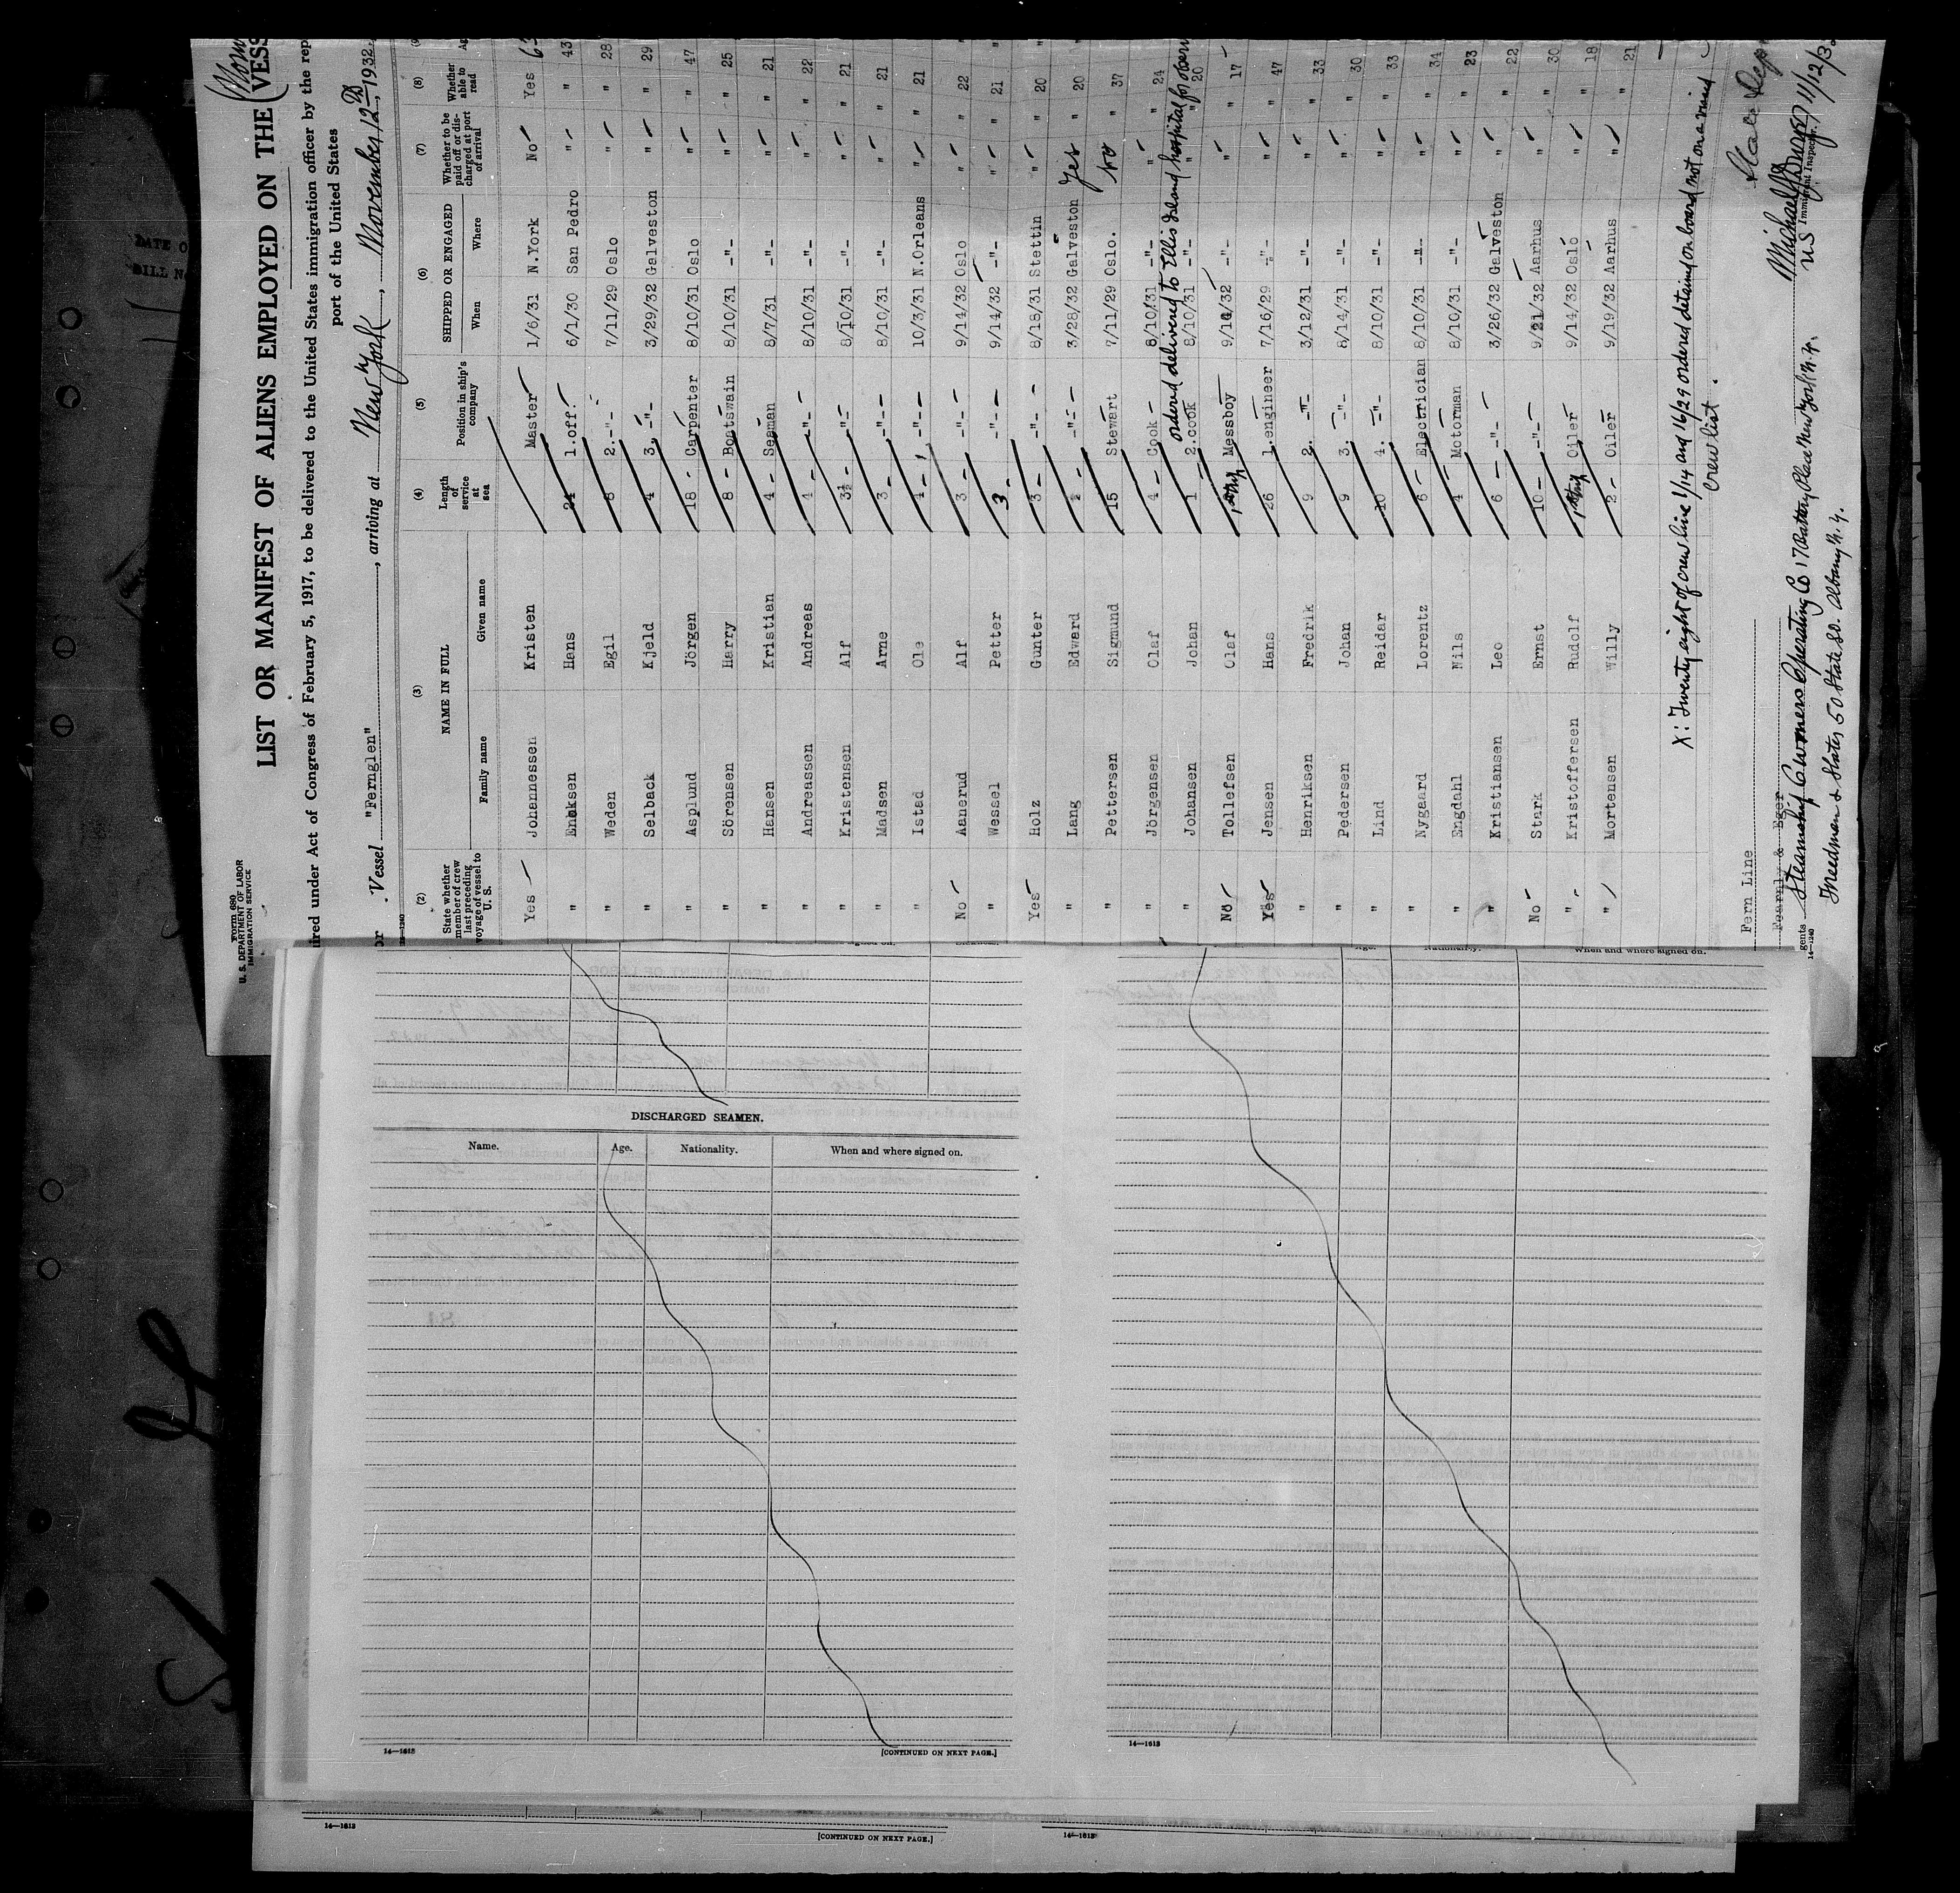 Form 680
U. S. DEPARTMENT OF LABOR
IMMIGRATION SERVICE
LIST OR MANIFEST OF ALIENS EMPLOYED ON THE VESS
ired under Act of Congress of February 5, 1917, to be delivered to the United States immigration officer by the rep
port of the United States
Vessel "Fernglen", arriving at New York, November 12th, 1932.
(2) (3) (4) (5) (6) (7) (8)
State whether member of crew last preceding voyage of vessel to U. S. NAME IN FULL Family name Given name Length of service at sea Position in ship's company SHIPPED OR ENGAGED When Where Whether to be paid off or discharged at port of arrival Whether able to read
Yes Johannessen Kristen Master 1/6/31 N.York No Yes
" Hans 1.off. 6/1/30 San Pedro " " 43
" Weden Egil 8 2.-"- 7/11/29 Oslo " " 28
" Selback Kjeld 4 3.-"- 3/29/32 Galveston " " 29
" Asplund Jörgen 18 Carpenter 8/10/31 Oslo " " 47
" Sörensen Harry 8 Boatswain 8/10/31 -"- " " 25
" Hansen Kristian 4 Seaman 8/7/31 -"- " " 21
" Andreassen Andreas 4 -"- 8/10/31 -"- " " 22
" Kristensen Alf 3½ -"- 8/10/31 -"- " " 21
" Madsen Arne 3 -"- 8/10/31 -"- " " 21
" Istad Ole 1 -"- 10/3/31 N.Orleans " " 21
No Aanerud Alf 3 -"- 9/14/32 Oslo " " 22
" Wessel Petter 3 -"- 9/14/32 -"- " " 21
Yes Holz Gunter 3 -"- 8/18/31 Stettin " " 20
" Lang Edward -"- 3/28/32 Galveston Yes " 20
" Pettersen Sigmund 15 Stewart 7/11/29 Oslo. No " 37
" Jörgensen Olaf 4 Cook 8/10/31 -"- " " 24
ordered delivered to Ellis Island hospital for observ
" Johansen Johan 1 2.cook 8/10/31 -"- " " 20
No Tollefsen Olaf 1st trip Messboy 9/14/32 -"- " " 17
Yes Jensen Hans 26 1.engineer 7/16/29 -"- " " 47
" Henriksen Fredrik 9 2. -"- 3/12/31 -"- " " 33
" Pedersen Johan 9 3. -"- 8/14/31 -"- " " 30
" Lind Reidar 10 4. -"- 8/10/31 -"- " " 33
" Nygaard Lorentz 6 Electrician 8/10/31 -"- " " 34
" Engdahl Nils 4 Motorman 8/10/31 -"- " " 23
" Kristiansen Leo 6 -"- 3/26/32 Galveston " " 22
No Stark Ernst 10 -"- 9/21/32 Aarhus " " 30
" Kristoffersen Rudolf 1st trip Oiler 9/14/32 Oslo " " 18
" Mortensen Willy 2 Oiler 9/19/32 Aarhus " " 21
X: Twenty eight of crew line 1/14 and 16/29 ordered detained on board not on a visaed
Crew list.
Fern Line
Fearnly & Eger
gents Steamship Owners Operating Co 17 Battery Place New York N.Y.
Freedman & Slater 50 State St. Albany N.Y.
U S Immigrant Inspector. 11/12/3
14—1240
Age. Nationality. When and where signed on.
DISCHARGED SEAMEN.
Name. Age. Nationality. When and where signed on.
14—1613 [CONTINUED ON NEXT PAGE.]
14—1613
14—1613 [CONTINUED ON NEXT PAGE.]
14—1613